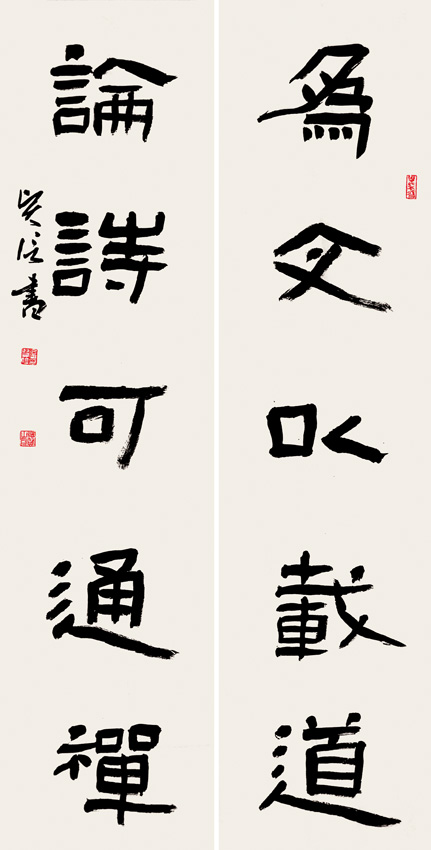 為文以載道
論詩可通禪
書